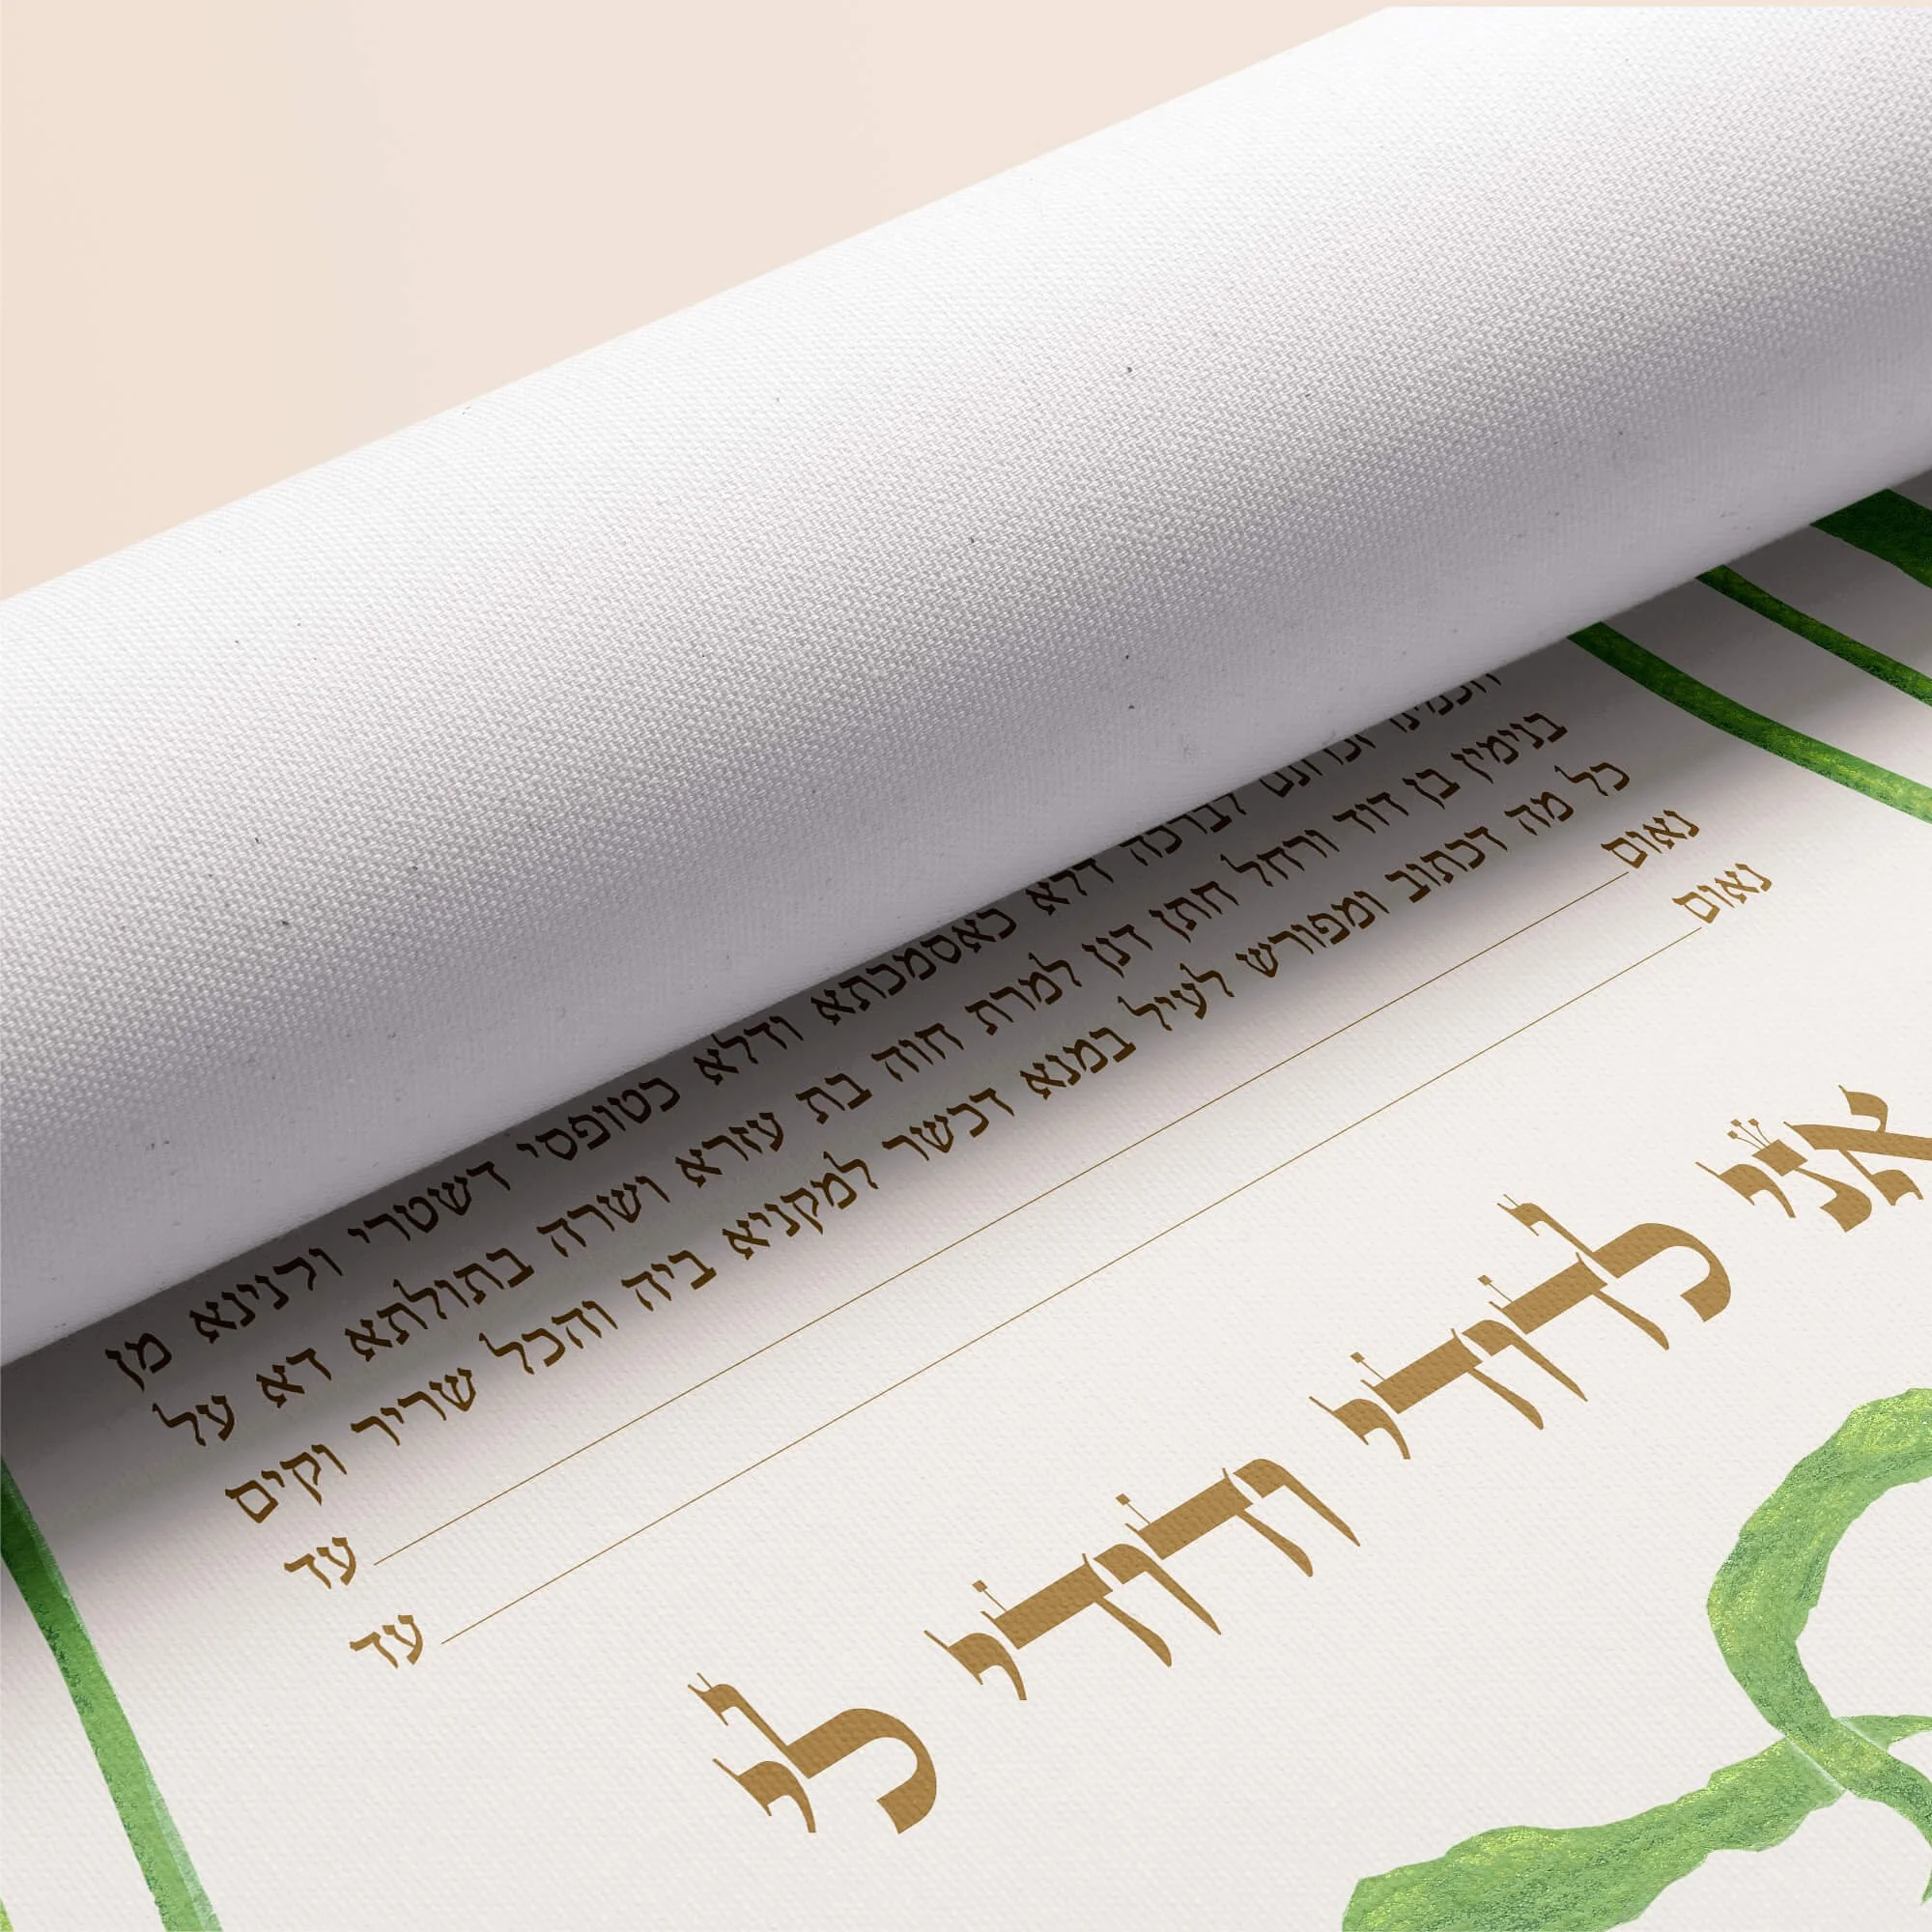 לברכה דלא כאסמכתא ודלא כטופסי דשטרי וקנינא מן
בנימין בן דוד ורחל חתן דנן למרת חוה בת עזרא ושרה בתולתא דא על
כל מה דכתוב ומפורש לעיל במנא דכשר למקניא ביה והכל שריר וקים
נאום עד
נאום עד
אני לדודי ודודי לי